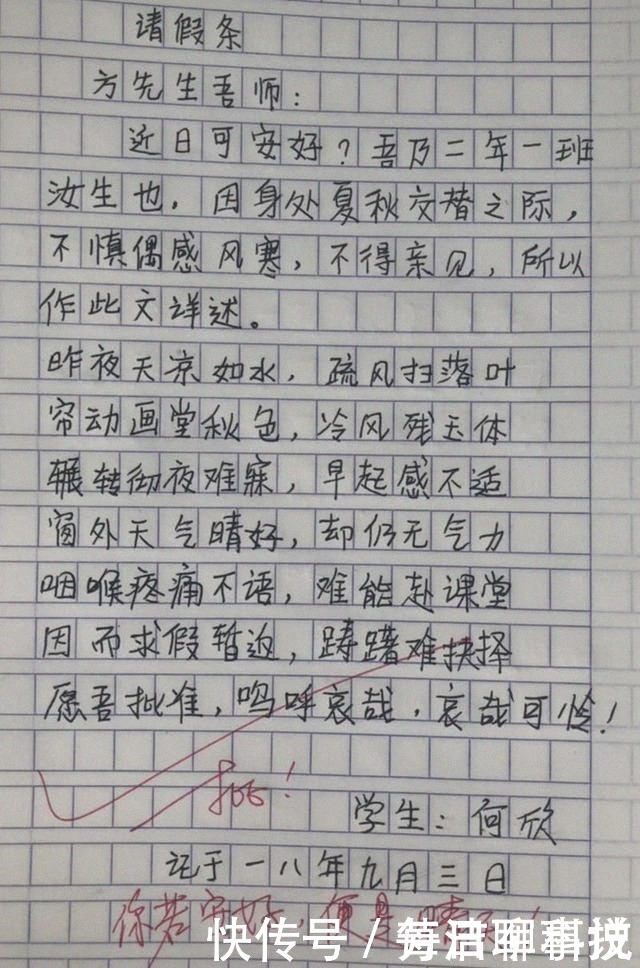 请假条
方先生吾师：
近日可安好？吾乃二年一班
汝生也，因身处夏秋交替之际，
不慎偶感风寒，不得亲见，所以
作此文详述。
昨夜天凉如水，疏风扫落叶
帘动画堂秋色，冷风残玉体
辗转彻夜难寐，早起感不适
窗外天气晴好，却仍无气力
咽喉疼痛不语，难能赴课堂
因而求假暂返，踌躇难抉择
愿吾批准，呜呼哀哉，哀哉可怜！
批！
学生：何欣
记于一八年九月三日
你若安好，便是晴
快传号／